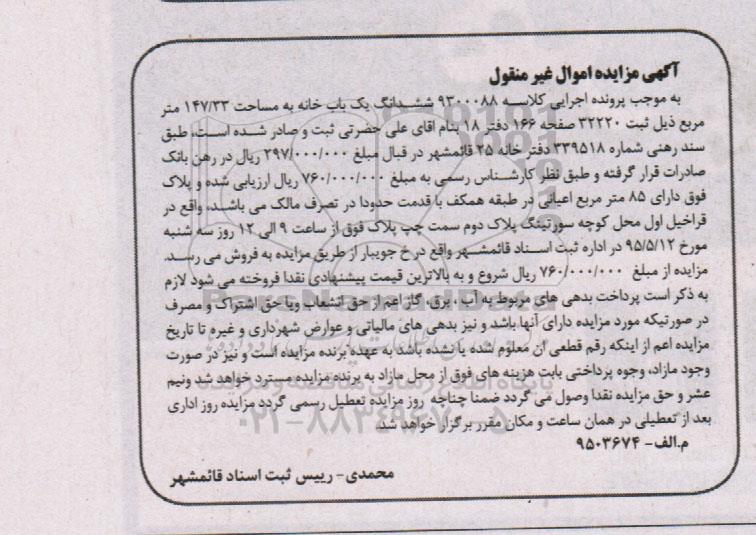 آگهی مزایده اموال غیر منقول
به موجب پرونده اجرایی کلاسه ۹۳۰۰۰۸۸ ششدانگ یک باب خانه به مساحت ۱۴۷/۳۳ متر
مربع ذیل ثبت ۳۲۲۲۰ صفحه ۱۶۶ دفتر ۱۸ بنام اقای علی حضرتی ثبت و صادر شده است، طبق
سند رهنی شماره ۳۳۹۵۱۸ دفتر خانه ۲۵ قائمشهر در قبال مبلغ ۲۹۷/۰۰۰/۰۰۰ ریال در رهن بانک
صادرات قرار گرفته و طبق نظر کارشناس رسمی به مبلغ ۷۶۰/۰۰۰/۰۰۰ ریال ارزیابی شده و پلاک
فوق دارای ۸۵ متر مربع اعیانی در طبقه همکف با قدمت حدودا در تصرف مالک می باشد، واقع در
قراخیل اول محل کوچه سورتینگ پلاک دوم سمت چپ پلاک فوق از ساعت ۹ الی ۱۲ روز سه شنبه
مورخ ۹۵/۵/۱۲ در اداره ثبت اسناد قائمشهر واقع در خ جویبار از طریق مزایده به فروش می رسد.
مزایده از مبلغ ۷۶۰/۰۰۰/۰۰۰ ریال شروع و به بالاترین قیمت پیشنهادی نقدا فروخته می شود لازم
به ذکر است پرداخت بدهی های مربوط به آب ، برق، گاز اعم از حق انشعاب ویا حق اشتراک و مصرف
در صورتیکه مورد مزایده دارای آنها باشد و نیز بدهی های مالیاتی و عوارض شهرداری و غیره تا تاریخ
مزایده اعم از اینکه رقم قطعی ان معلوم شده یا نشده باشد به عهده برنده مزایده است و نیز در صورت
وجود مازاد، وجوه پرداختی بابت هزینه های فوق از محل مازاد به برنده مزایده مسترد خواهد شد ونیم
عشر و حق مزایده نقدا وصول می گردد ضمنا چناچه روز مزایده تعطیل رسمی گردد مزایده روز اداری
بعد از تعطیلی در همان ساعت و مکان مقرر برگزار خواهد شد.
م.الف- ۹۵۰۳۶۷۴
محمدی- رییس ثبت اسناد قائمشهر
۰۲۱-۸۸۳۴۹۶۷۰-۵